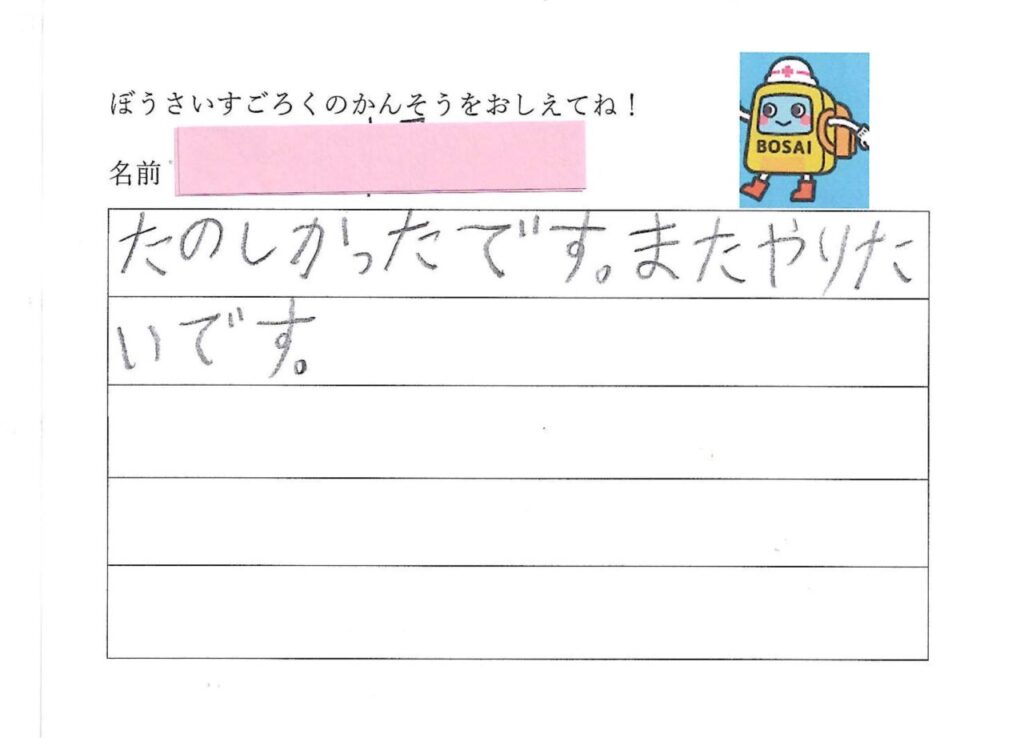 ぼうさいすごろくのかんそうをおしえてね！
名前
BOSAI
たのしかったです。またやりた
いです。